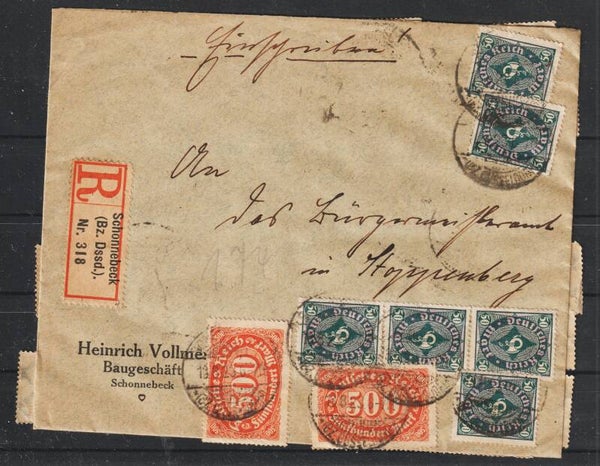 Einschreiben
An
das Bürgermeisteramt
in Stoppenberg
R
Schonnebeck
(Bz. Dssd.).
Nr. 318
Heinrich Vollme
Baugeschäft
Schonnebeck
Deutsches Reich
50
Deutsches Reich
50
Deutsches Reich
50
Deutsches Reich
50
Deutsches Reich
50
Deutsches Reich
50
Deutsches Reich
500
Fünfhundert Mark
Deutsches Reich
500
Fünfhundert Mark